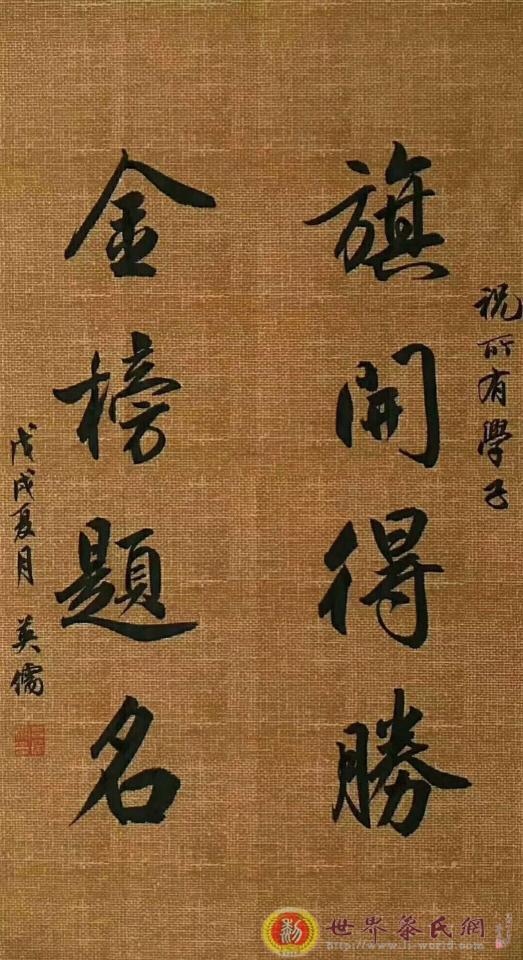 祝所有學子
旗開得勝
金榜題名
戊戌夏月 英儒
世界黎氏網
http://www.li-world.com